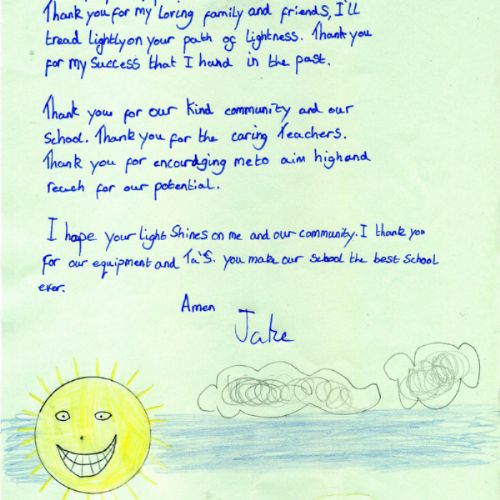 Thank you for my Loring family and friends, I'll
tread lightly on your path of lightness. Thank you
for my Success that I hand in the past.
Thank you for our kind community and our
School. Thank you for the caring Teachers.
Thank you for encouraging me to aim high and
reach for our potential.
I hope your light Shines on me and our community. I thank you
for our equipment and Ta's. you make our school the best School
ever.
Amen
Jake